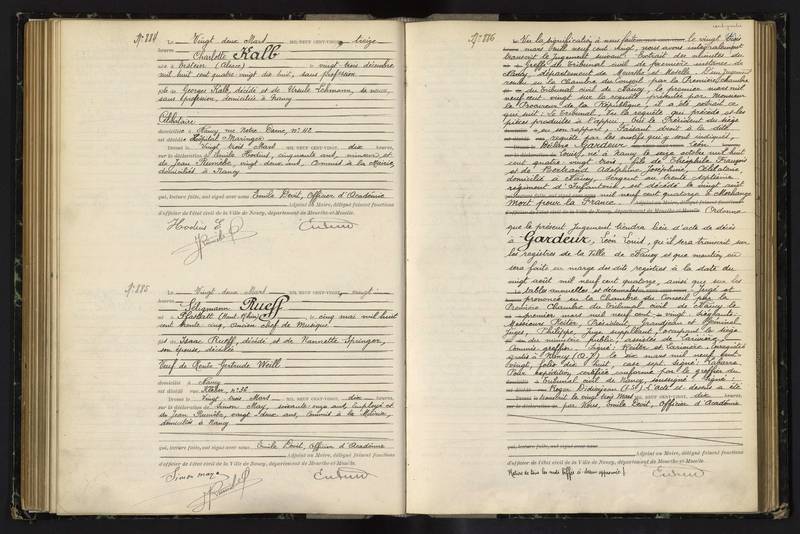 N° 884
Le Vingt deux Mars MIL NEUF CENT-VINGT, treize
heures
Charlotte Kalb
née à (Alsace) le vingt trois décembre
mil huit cent quatre vingt dix huit, sans profession
fille de Georges Kalb, décédé et de Ursule Lehmann, sa veuve,
sans profession, domiciliée à Nancy
Célibataire
domiciliée à Nancy rue Notre Dame, N° 42
est décédée Hôpital Maringer
Dressé le Vingt trois Mars MIL NEUF CENT-VINGT, dix heures,
sur la déclaration de Emile Hodius, cinquante ans, et
de Jean, vingt deux ans, Commis à la Mairie,
domiciliés à Nancy
qui, lecture faite, ont signé avec nous Emile Devit, Officier d'Académie
Adjoint au Maire, délégué faisant fonctions
d'officier de l'état civil de la Ville de Nancy, département de Meurthe-et-Moselle.
Hodius E
N° 885
Le Vingt deux Mars MIL NEUF CENT-VINGT, vingt
heures
Seligmann Rueff
né à (Haut Rhin) le cinq mai mil huit
cent trente cinq, ancien chef de musique
fils de Isaac Rueff, décédé et de Nannette Springer,
son épouse, décédée
Veuf de Gertrude Weill
domicilié à Nancy
est décédé rue Kléber, N° 32
Dressé le Vingt trois Mars MIL NEUF CENT-VINGT, dix heures,
sur la déclaration de Simon May, soixante onze ans, employé et
de Jean, vingt deux ans, Commis à la Mairie,
domiciliés à Nancy
qui, lecture faite, ont signé avec nous Emile Devit, Officier d'Académie
Adjoint au Maire, délégué faisant fonctions
d'officier de l'état civil de la Ville de Nancy, département de Meurthe-et-Moselle.
Simon may
N° 886
Vu la signification à nous faite le vingt trois
mars mil neuf cent vingt, nous avons intégralement
transcrit le Jugement suivant: Extrait des minutes du
Greffe du Tribunal civil de première instance de
Nancy, département de Meurthe et Moselle. D'un Jugement
rendu en la Chambre du Conseil par la Première Chambre
du Tribunal civil de Nancy, le premier mars mil
neuf cent vingt sur la requête présentée par Monsieur
le Procureur de la République, il a été extrait ce
qui suit: Le Tribunal, Vu la requête qui précède et les
pièces produites à l'appui, Ouï le Président du siège
en son rapport, Faisant droit à la dite
requête par les motifs qui y sont indiqués,
Déclare Gardeur Léon
Louis, né à Nancy le seize octobre mil huit
cent quatre vingt trois, fils de Théophile François
et de Bertrand Adolphine Joséphine, Célibataire
domicilié à Nancy, sergent au trente septième
régiment d'Infanterie, est décédé le vingt août
mil neuf cent quatorze à Morhange
Mort pour la France. Adjoint au Maire, délégué faisant fonctions
d'officier de l'état civil de la Ville de Nancy, département de Meurthe-et-Moselle. Ordonne
que le présent Jugement tiendra lieu d'acte de décès
à Gardeur, Léon Louis, qu'il sera transcrit sur
les registres de la Ville de Nancy et que mention en
sera faite en marge des dits registres à la date du
vingt août mil neuf cent quatorze, ainsi que sur les
tables annuelles et décennales Jugé et
prononcé en la Chambre du Conseil par la
Première Chambre du Tribunal civil de Nancy le
premier mars mil neuf cent vingt, siégeant:
Messieurs Reiter, Président, Grandjean et
Juges, Philippe, Juge suppléant, occupant le siège
du ministère public, assistés de Larivière,
Commis greffier. Signé: Reiter et Larivière. Enregistré
gratis à Nancy (A.J) le dix mars mil neuf cent
vingt, folio dix huit, case sept. Signé:
Pour expédition, certifiée conforme par le greffier du
Tribunal civil de Nancy, soussigné. Signé:
L'acte ci dessus a été
transcrit le vingt trois Mars MIL NEUF CENT-VINGT, dix heures,
par Nous, Emile Devit, Officier d'Académie
qui, lecture faite, ont signé avec nous
Adjoint au Maire, délégué faisant fonctions
d'officier de l'état civil de la Ville de Nancy, département de Meurthe-et-Moselle.
de tous les mots biffés ci-dessus approuvée!